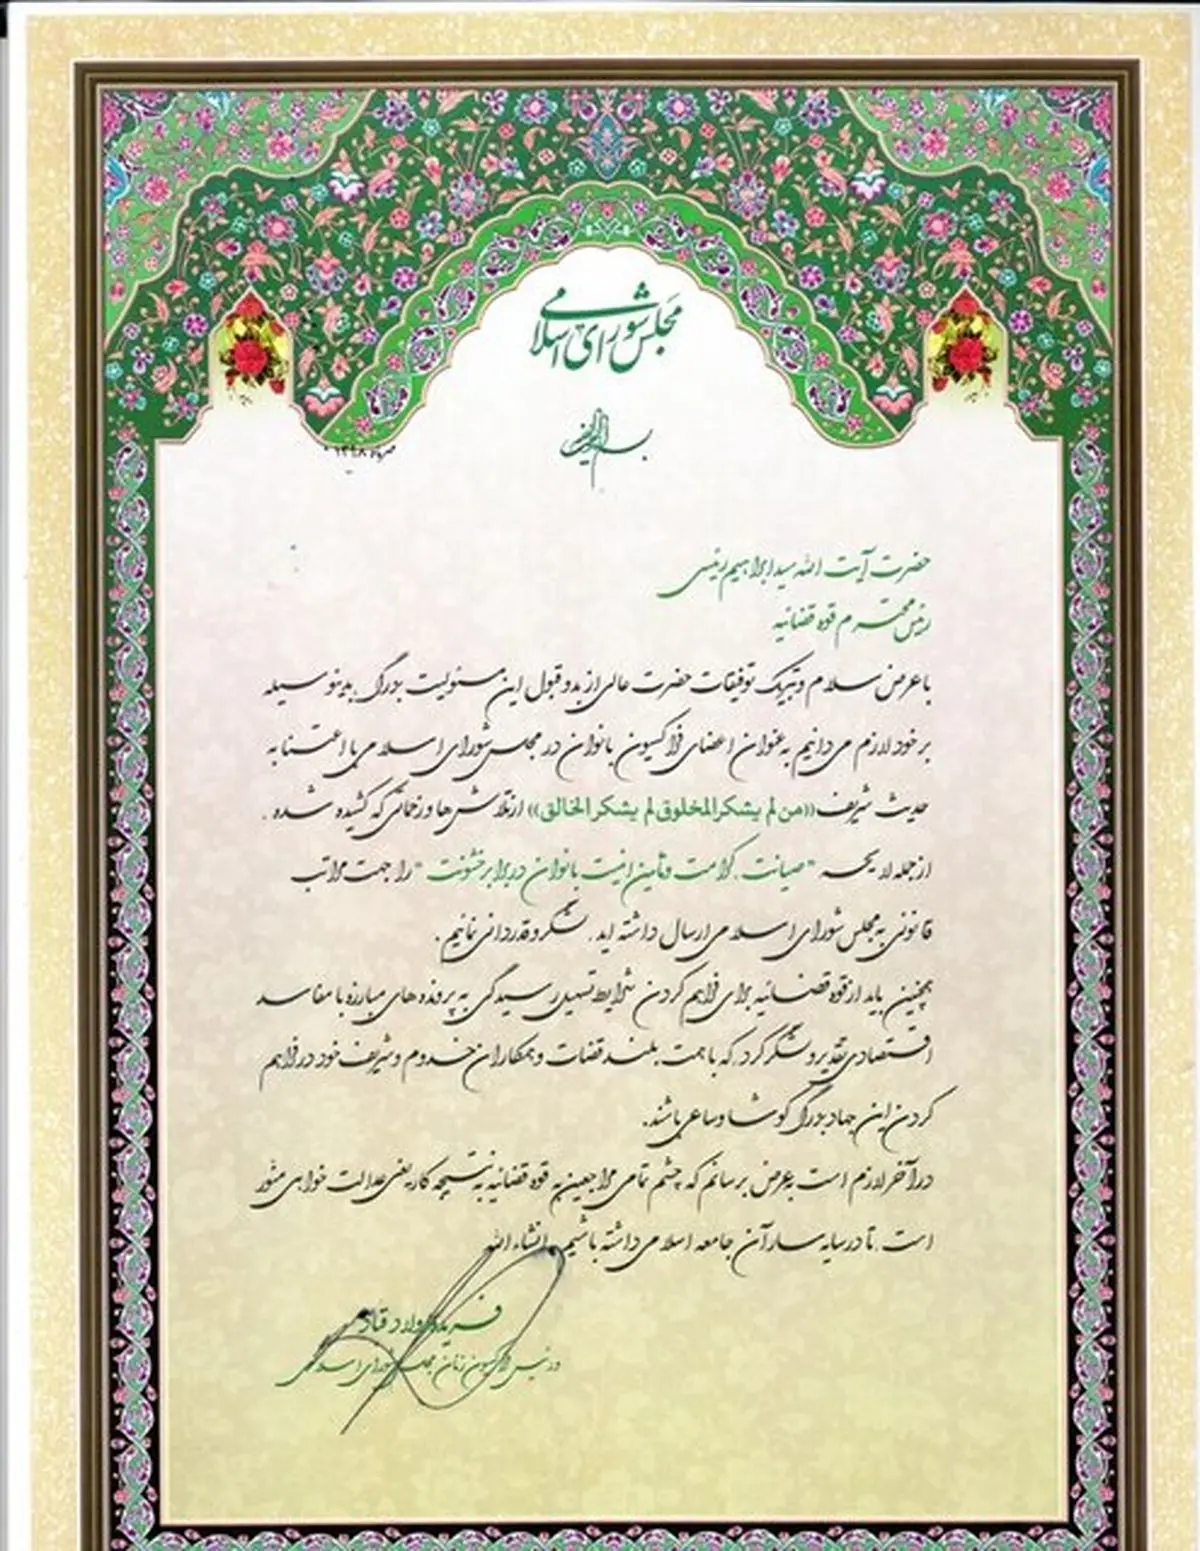 مجلس شورای اسلامی
بسم الله الرحمن الرحیم
مرداد ۱۳۹۸
حضرت آیت الله سید ابراهیم رئیسی
رئیس محترم قوه قضائیه
با عرض سلام و تبریک توفیقات حضرت عالی از بدو قبول این مسئولیت بزرگ، بدینوسیله
بر خود لازم می دانیم به عنوان اعضای فراکسیون بانوان در مجلس شورای اسلامی با اعتنا به
حدیث شریف ((من لم یشکر المخلوق لم یشکر الخالق)) از تلاش ها و زحماتی که کشیده شده،
از جمله لایحه "صیانت، کرامت و تأمین امنیت بانوان در برابر خشونت" را جهت مراتب
قانونی به مجلس شورای اسلامی ارسال داشته اید، تشکر و قدردانی نمائیم.
همچنین باید از قوه قضائیه برای فراهم کردن شرایط تسهیل رسیدگی به پرونده های مبارزه با مفاسد
اقتصادی تقدیر و تشکر کرد، که با همت بلند قضات و همکاران خدوم و شریف خود در فراهم
کردن این جهاد بزرگ کوشا و ساعی باشند.
در آخر لازم است به عرض برسانم که چشم تمامی مراجعین به قوه قضائیه به نتیجه کار یعنی عدالت خواهی منور
است، تا در سایه سار آن جامعه اسلامی داشته باشیم. انشاء الله
فریده اولاد قباد
رئیس فراکسیون زنان مجلس شورای اسلامی